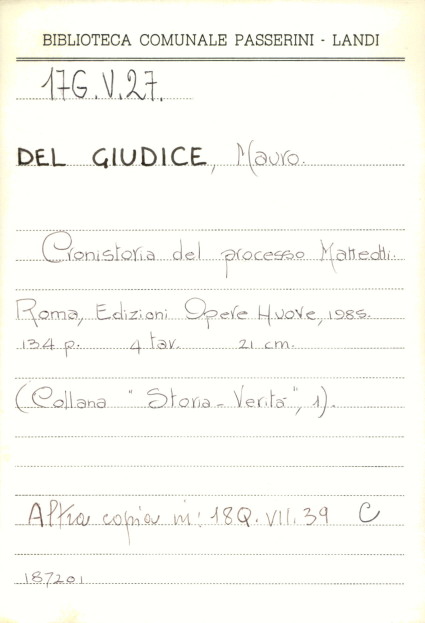 BIBLIOTECA COMUNALE PASSERINI - LANDI
17G.V.27.
DEL GIUDICE, Mauro.
Cronistoria del processo Matteotti.
Roma, Edizioni Opere Nuove, 1985.
134 p. 4 tav. 21 cm.
(Collana "Storia - Verità", 1).
Altra copia in: 18Q.VII.39 C
187201